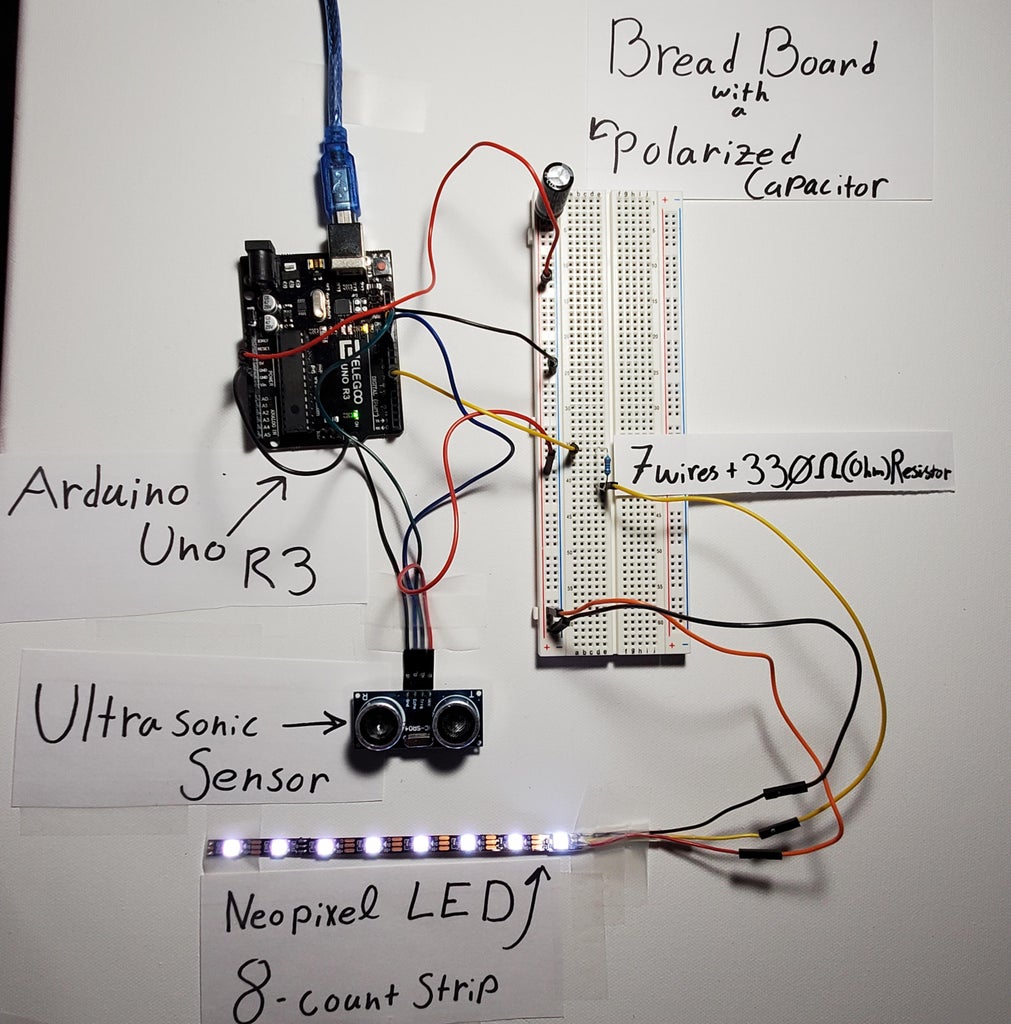 Bread Board
with
a
Polarized
Capacitor
ELEGOO
UNO R3
7 wires + 330Ω(Ohm) Resistor
Arduino
Uno R3
Ultrasonic
Sensor
Neopixel LED
8-count Strip